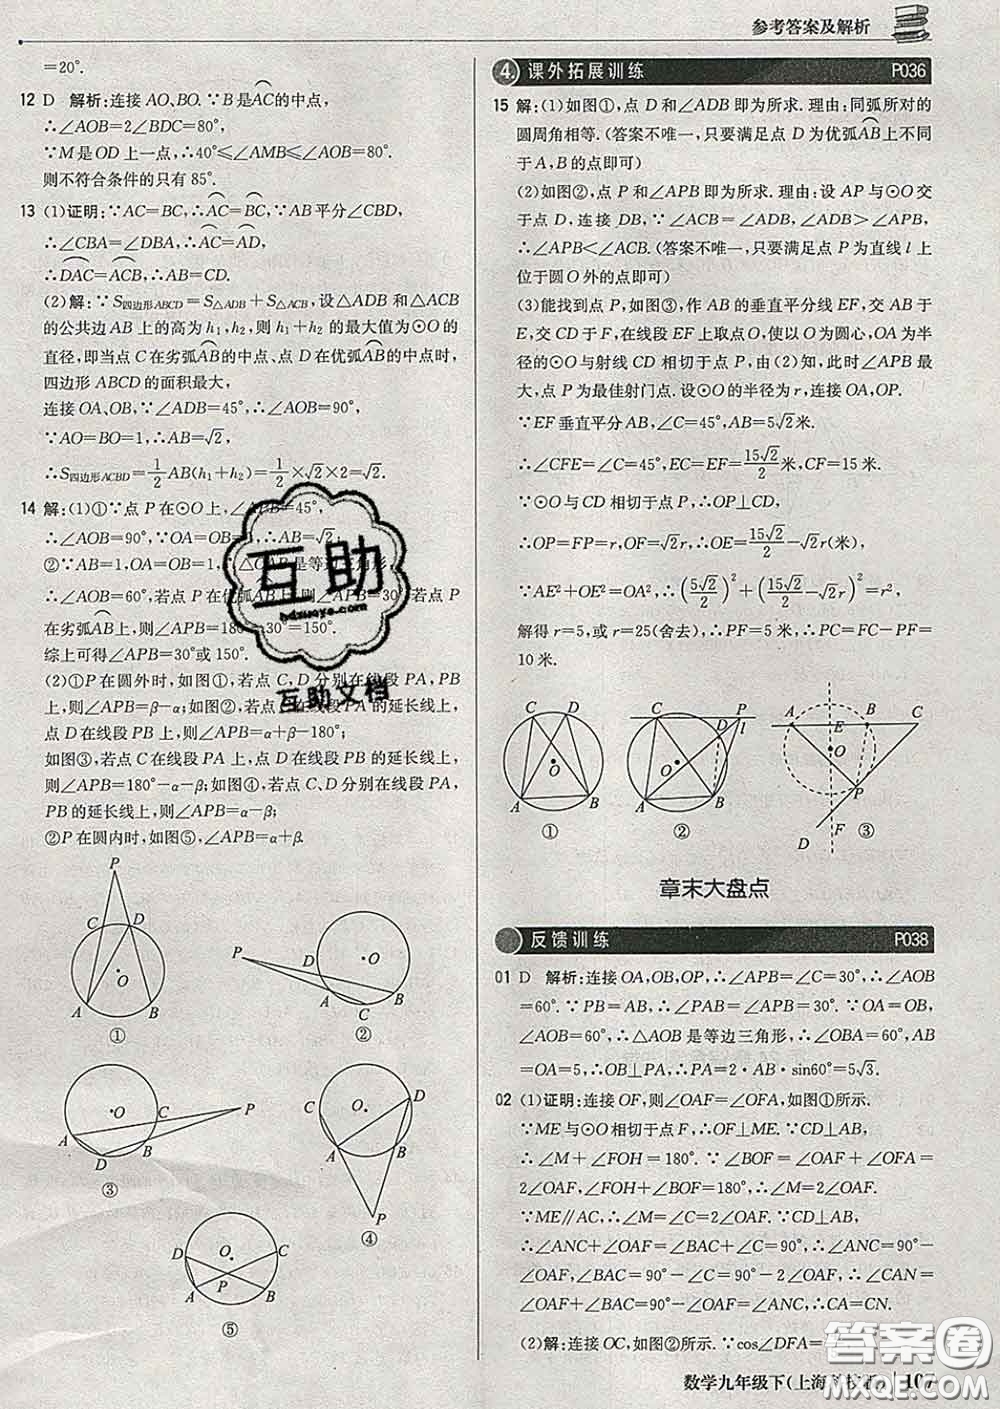 参考答案及解析
=20°.
12 D 解析:连接AO、BO.∵B是AC的中点,
∴∠AOB=2∠BDC=80°,
∵M是OD上一点,∴40°≤∠AMB≤∠AOB=80°.
则不符合条件的只有85°.
13 (1)证明:∵AC=BC,∴AC=BC,∵AB平分∠CBD,
∴∠CBA=∠DBA,∴AC=AD,
∴DAC=ACB,∴AB=CD.
(2)解:∵S四边形ABCD=S△ADB+S△ACB,设△ADB和△ACB
的公共边AB上的高为h₁,h₂,则h₁+h₂的最大值为⊙O的
直径,即当点C在劣弧AB的中点、点D在优弧AB的中点时,
四边形ABCD的面积最大,
连接OA、OB,∵∠ADB=45°,∴∠AOB=90°,
∵AO=BO=1,∴AB=√2,
∴S四边形ACBD=1/2AB(h₁+h₂)=1/2×√2×2=√2.
14 解:(1)①∵点P在⊙O上,∠APB=45°,
∴∠AOB=90°,∵OA=OB=1,∴AB=√2.
②∵AB=1,OA=OB=1,∴△OAB是等边三角形,
∴∠AOB=60°,若点P在优弧AB上,则∠APB=30°,若点P
在劣弧AB上,则∠APB=180°-30°=150°.
综上可得∠APB=30°或150°.
(2)①P在圆外时,如图①,若点C、D分别在线段PA、PB
上,则∠APB=β-α;如图②,若点C在线段PA的延长线上,
点D在线段PB上,则∠APB=α+β-180°;
如图③,若点C在线段PA上,点D在线段PB的延长线上,
则∠APB=180°-α-β;如图④,若点C、D分别在线段PA、
PB的延长线上,则∠APB=α-β;
②P在圆内时,如图⑤,∠APB=α+β.
P
C D
O
A B
①
P D
O
B
C
②
O C
P
A
D
③
O D
A B
P
④
D O C
A P B
⑤
4. 课外拓展训练 P036
15 解:(1)如图①,点D和∠ADB即为所求.理由:同弧所对的
圆周角相等.(答案不唯一,只要满足点D为优弧AB上不同
于A、B的点即可)
(2)如图②,点P和∠APB即为所求.理由:设AP与⊙O交
于点D,连接DB,∵∠ACB=∠ADB,∠ADB>∠APB,
∴∠APB<∠ACB.(答案不唯一,只要满足点P为直线l上
位于圆O外的点即可)
(3)能找到点P,如图③,作AB的垂直平分线EF,交AB于
E,交CD于F,在线段EF上取点O,使以O为圆心,OA为半
径的⊙O与射线CD相切于点P,由(2)知,此时∠APB最
大,点P为最佳射门点.设⊙O的半径为r,连接OA、OP.
∵EF垂直平分AB,∠C=45°,AB=5√2米.
∴∠CFE=∠C=45°,EC=EF=15√2/2米,CF=15米.
∵⊙O与CD相切于点P,
∴OP=FP=r,OF=√2r,∴OE=15√2/2-√2r(米),
∵AE²+OE²=OA²,∴(5√2/2)²+(15√2/2-√2r)²=r²,
解得r=5,或r=25(舍去),∴PF=5米,∴PC=FC-PF=
10米.
C D
O
A B
①
C P
D l
O
A B
②
A E B C
O
P
D F
③
章末大盘点
反馈训练 P038
01 D 解析:连接OA,OB,OP,∴∠APB=∠C=30°,∴∠AOB
=60°.∵PB=AB,∴∠PAB=∠APB=30°.∵OA=OB,
∠AOB=60°,∴△AOB是等边三角形,∴∠OBA=60°,AB
=OA=5,∴OB⊥PA,∴PA=2·AB·sin60°=5√3.
02 (1)证明:连接OF,则∠OAF=∠OFA,如图①所示.
∵ME与⊙O相切于点F,∴OF⊥ME.∵CD⊥AB,
∴∠M+∠FOH=180°.∵∠BOF=∠OAF+∠OFA=
2∠OAF,∠FOH+∠BOF=180°,∴∠M=2∠OAF.
∵ME∥AC,∴∠M=∠C=2∠OAF.∵CD⊥AB,
∴∠ANC+∠OAF=∠BAC+∠C=90°,∴∠ANC=90°
-∠OAF,∠BAC=90°-∠C=90°-2∠OAF,∴∠CAN=
∠OAF+∠BAC=90°-∠OAF=∠ANC,∴CA=CN.
(2)解:连接OC,如图②所示.∵cos∠DFA=
数学九年级下(上海科技版) 107
互助
hdzuoye.com
互助文档
答案圈